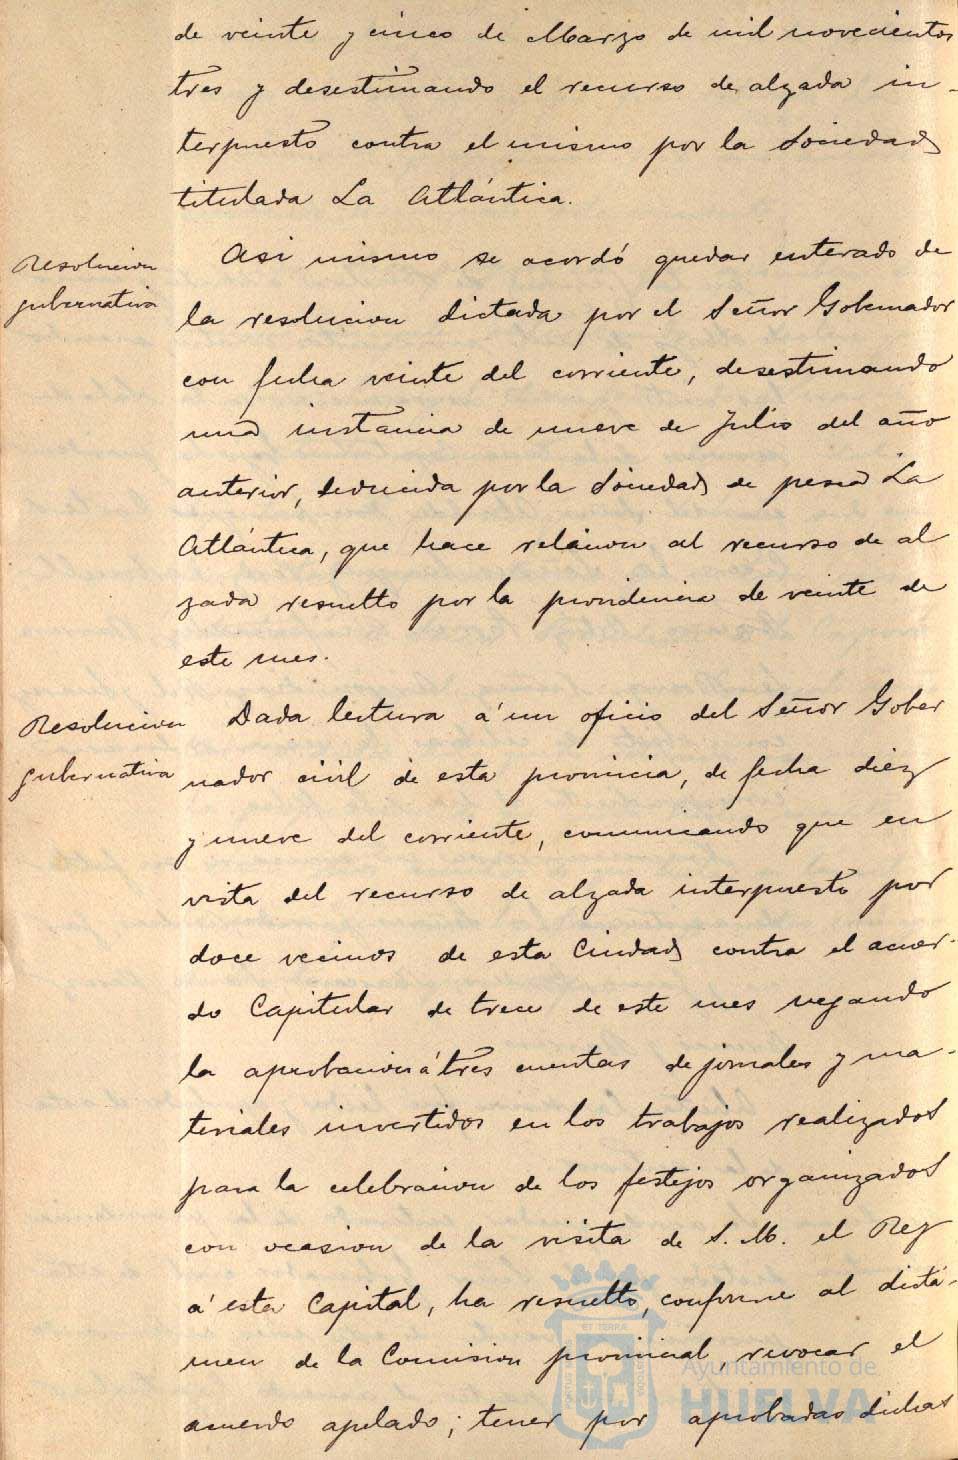 de veinte y cinco de Marzo de mil novecientos
tres y desestimando el recurso de alzada in-
terpuesto contra el mismo por la Sociedad
titulada La Atlántica.
Resolucion
gubernativa
Asi mismo se acordó quedar enterado de
la resolucion dictada por el Señor Gobernador
con fecha veinte del corriente, desestimando
una instancia de nueve de Julio del año
anterior, deducida por la Sociedad de pesca La
Atlántica, que hace relacion al recurso de al
zada resuelto por la providencia de veinte de
este mes.
Resolucion
gubernativa
Dada lectura á un oficio del Señor Gober
nador civil de esta provincia, de fecha diez
y nueve del corriente, comunicando que en
vista del recurso de alzada interpuesto por
doce vecinos de esta Ciudad contra el acuer-
do Capitular de trece de este mes negando
la aprobacion á tres cuentas de jornales y ma-
teriales invertidos en los trabajos realizados
para la celebracion de los festejos organizados
con ocasion de la visita de S. M. el Rey
á esta Capital, ha resuelto, conforme al dictá-
men de la Comision provincial, revocar el
acuerdo apelado; tener por aprobadas dichas
ET TERRA
PORTUS MARIS
CUSTODIA
Ayuntamiento de
HUELVA